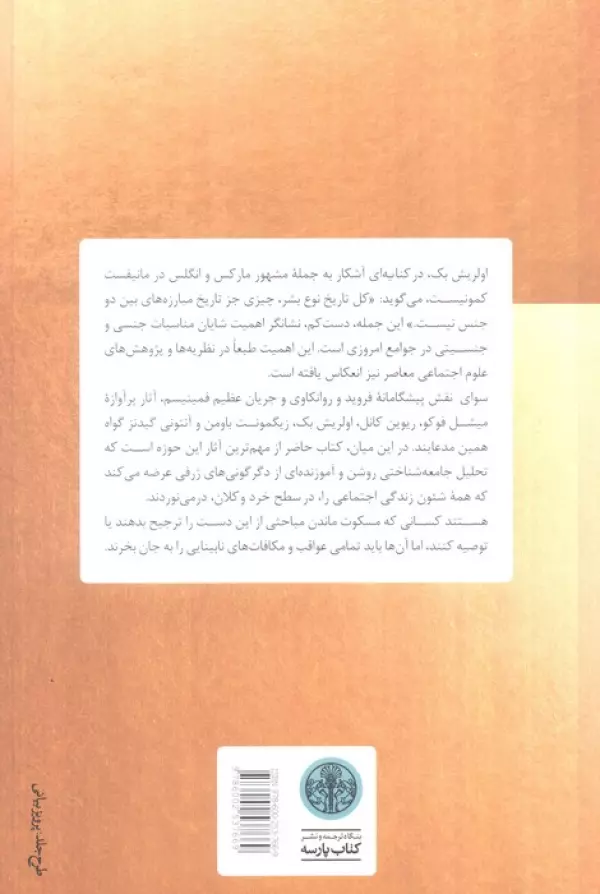 اولریش بک، در کنایه‌ای آشکار به جملهٔ مشهور مارکس و انگلس در مانیفست
کمونیست، می‌گوید: «کل تاریخ نوع بشر، چیزی جز تاریخ مبارزه‌های بین دو
جنس نیست.» این جمله، دست‌کم، نشانگر اهمیت شایان مناسبات جنسی و
جنسیتی در جوامع امروزی است. این اهمیت طبعاً در نظریه‌ها و پژوهش‌های
علوم اجتماعی معاصر نیز انعکاس یافته است.
سوای نقش پیشگامانهٔ فروید و روانکاوی و جریان عظیم فمینیسم، آثار پرآوازهٔ
میشل فوکو، ریوین کانل، اولریش بک، زیگمونت باومن و آنتونی گیدنز گواه
همین مدعایند. در این میان، کتاب حاضر از مهم‌ترین آثار این حوزه است که
تحلیل جامعه‌شناختی روشن و آموزنده‌ای از دگرگونی‌های ژرفی عرضه می‌کند
که همهٔ شئون زندگی اجتماعی را، در سطح خرد و کلان، درمی‌نوردند.
هستند کسانی که مسکوت ماندن مباحثی از این دست را ترجیح بدهند یا
توصیه کنند، اما آن‌ها باید تمامی عواقب و مکافات‌های نابینایی را به جان بخرند.
بنگاه ترجمه و نشر
کتاب پارسه
طرح جلد: پرویز بیانی